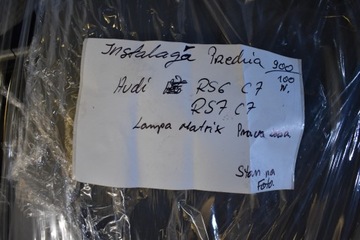 Instalacja Przednia 900
100
Audi RS6 C7 N.
RS7 C7
Lampa Matrik Prawa
Stan na
Foto.